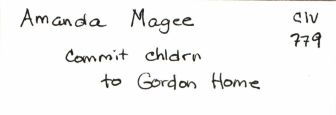 Amanda Magee
CIV
779
Commit chldrn
to Gordon Home